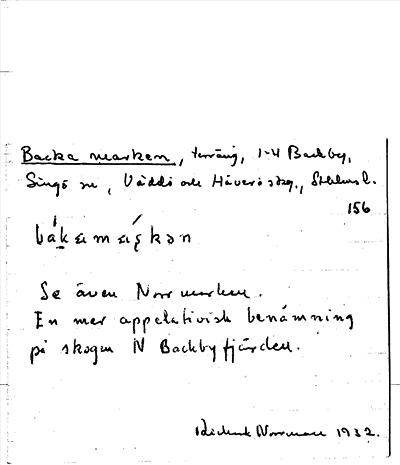 Backa marken, terräng, 1-4 Backby,
Singö sn, Väddö och Häverö skg., Sthlms l.
156
bákamaşkən
Se även Norrmarken.
En mer appelativisk benämning
på skogen N Backbyfjärden.
Norrman 1932.